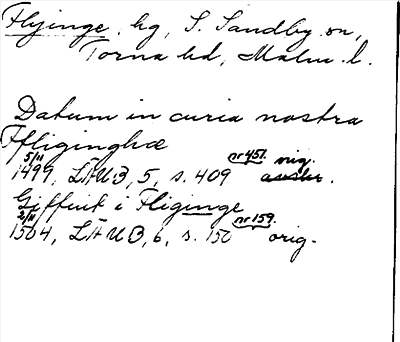 Flyinge. hg, S. Sandby sn,
Torna hd, Malm. l.
Datum in curia nostra
Ffliginghæ
5/11 nr 457. orig.
1499, LÄUB, 5, s. 409 avskr.
Giffuit i Fliginge
2/11 nr 159.
1504, LÄUB, 6, s. 150 orig.